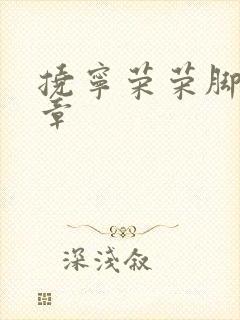 挠宁荣荣脚
章
深浅叙